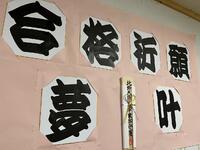 合格祈願
夢叶